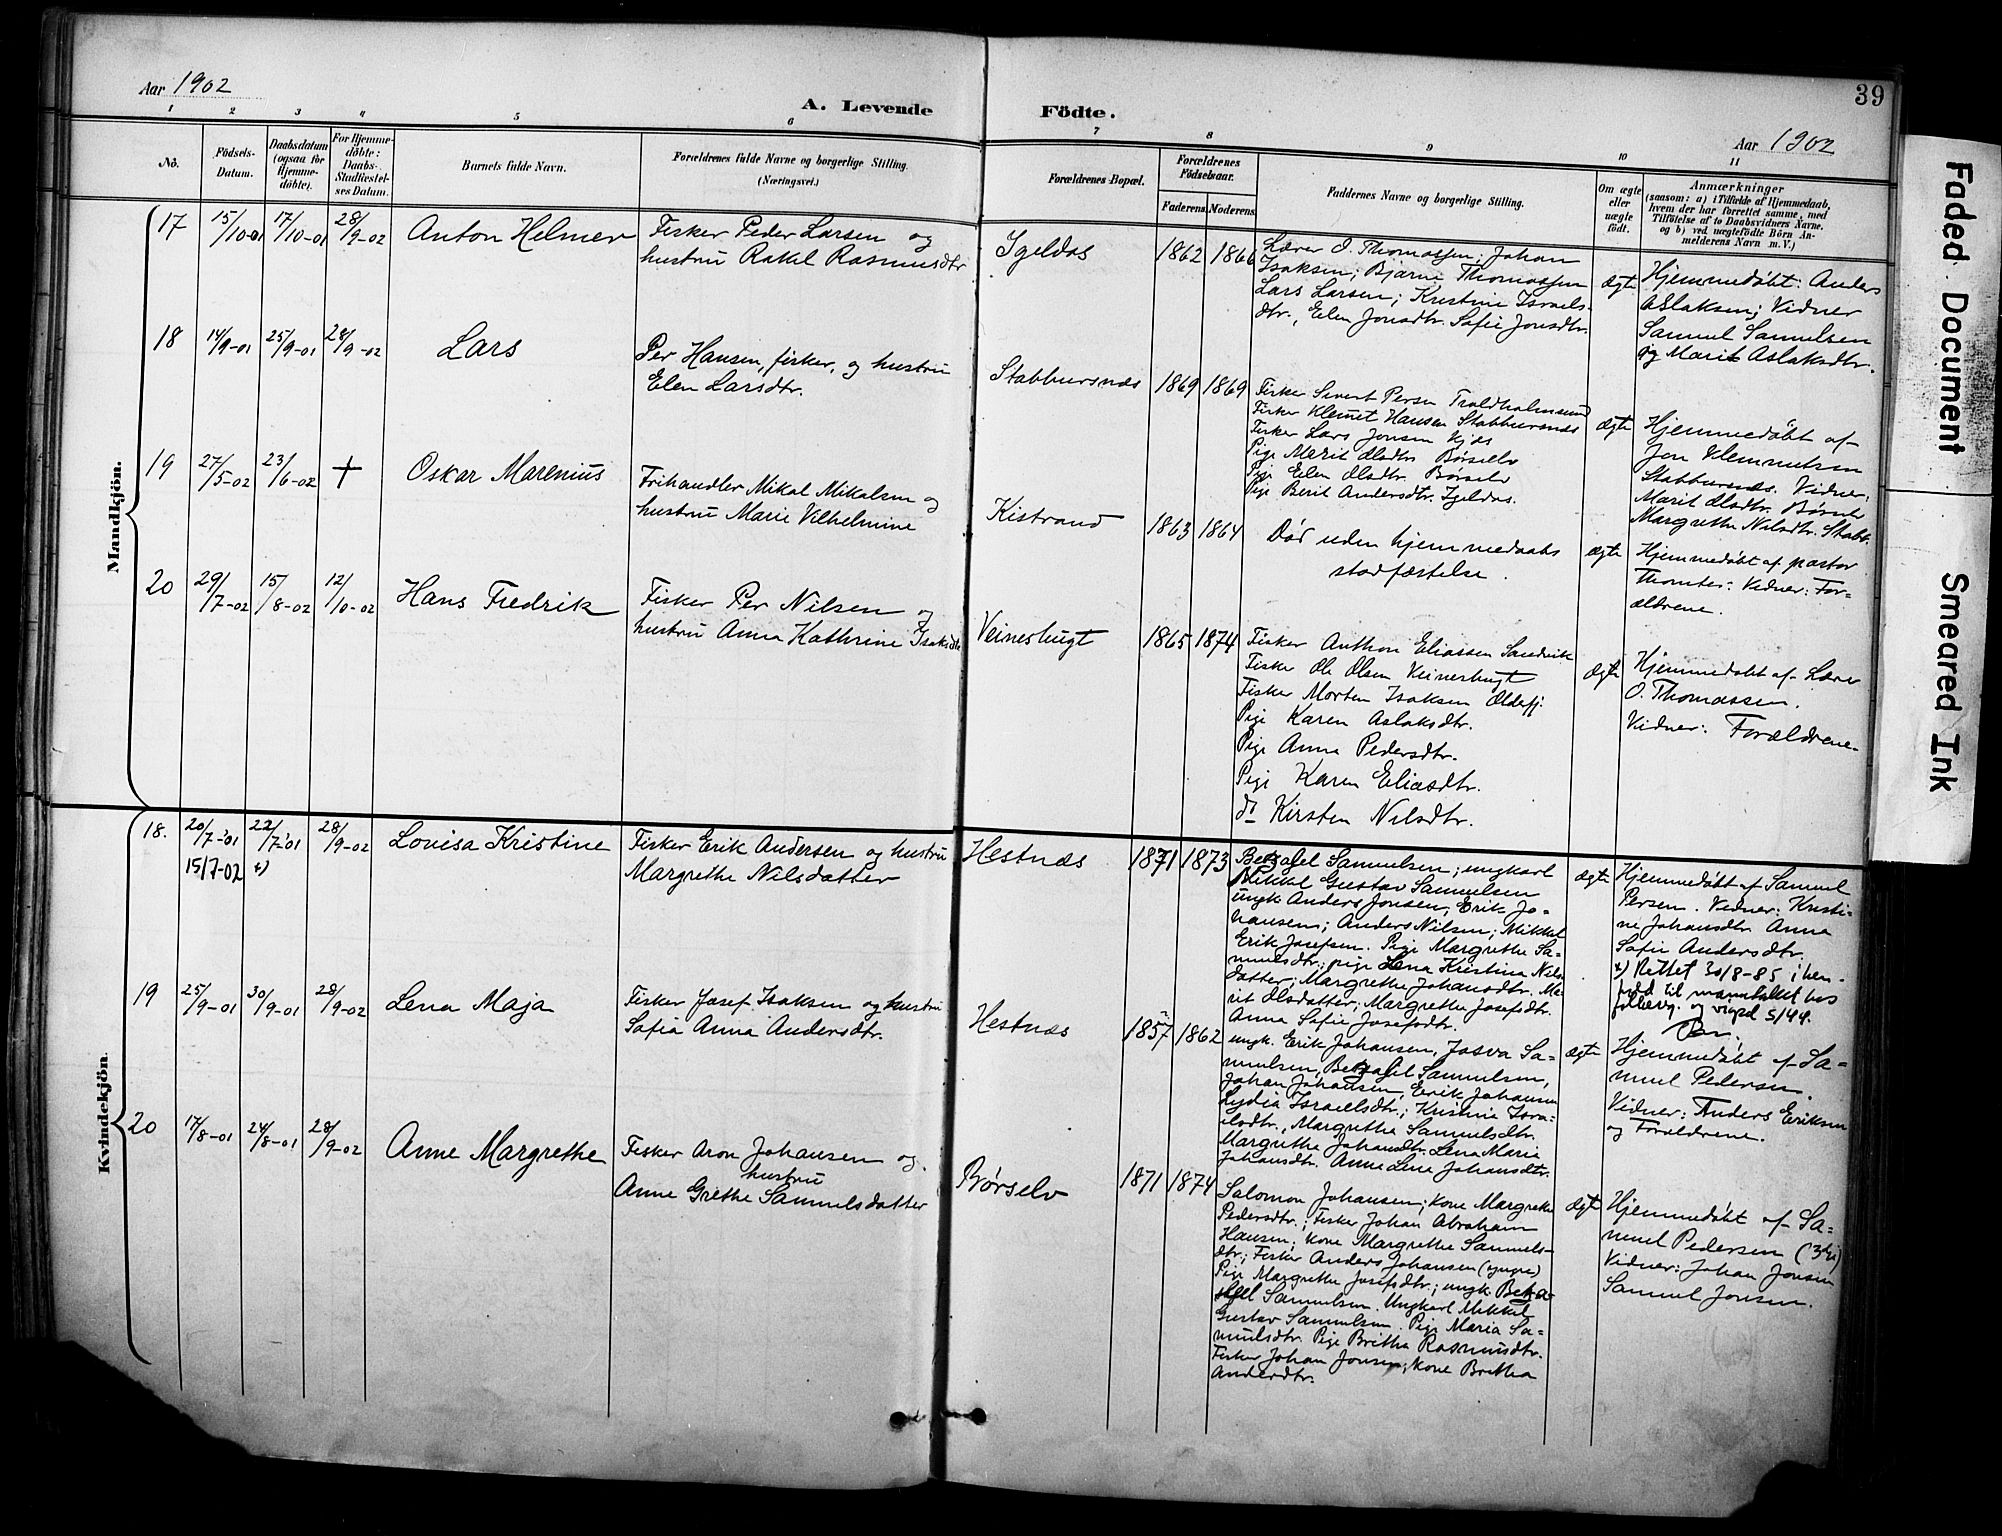 Aar 1902
A. Levende
Födte.
39
Aar 1902
1 2 3 4 5 6 7 8 9 10 11
No.
Födsels-
Datum.
Daabsdatum
(ogsaa for
Hjemme-
döbte).
For Hjemme-
döbte:
Daabs-
Stadfæstel-
ses Datum.
Barnets fulde Navn.
Forældrenes fulde Navne og borgerlige Stilling.
(Næringsvei.)
Forældrenes Bopæl.
Forældrenes
Födselsaar.
Faderens.
Moderens.
Faddernes Navne og borgerlige Stilling.
Om ægte
eller
uægte
födt.
Anmærkninger
(saasom: a) i Tilfælde af Hjemmedaab,
hvem der har forrettet samme, med
Tilföielse af to Daabsvidners Navne.
og b) ved uægtefödte Börn An-
melderens Navn m. V.)
Mandkjön.
17
15/10-01
17/10-01
28/9-02
Anton Helmer
Fisker Peder Larsen og
hustru Rakel Rasmusdtr
Igeldas
1862
1866
Lærer O. Thomassen; Johan
Isaksen; Bjarne Thomassen
Lars Larsen; Kristine Israels-
dtr., Elen Jonsdtr. Sofie Jonsdtr.
ægte
Hjemmedøbt: Anders
Aslaksen; Vidner
Samuel Samuelsen
og Marit Aslaksdtr.
18
14/9-01
25/9-01
28/9-02
Lars
Per Hansen, fisker, og hustru
Elen Larsdtr.
Stabbursnæs
1869
1869
Fisker Sivert Persen Troldholmsund
Fisker Klemet Hansen Stabbursnæs
Fisker Lars Jonsen
Pige Marit Olsdtr Børselv
Pige Elen Olsdtr. Børselv
Pige Berit Andersdtr. Igeldas.
ægte
Hjemmedøbt af
Jon Klemmetsen
Stabbursnæs. Vidner:
Marit Olsdtr. Børselv
Margrethe Nilsdtr. Stabb.
19
27/5-02
23/6-02
+
Oskar Marenius
Frihandler Mikal Mikalsen og
hustru Marie Vilhelmine
Kistrand
1863
1864
Død uden hjemmedaabs
stadfæstelse.
ægte
Hjemmedøbt af pastor
Vidner: For=
ældrene.
20
29/7-02
15/8-02
12/10-02
Hans Fredrik
Fisker Per Nilsen og
hustru Anna Kathrine Isaksdtr
Veinesbugt
1865
1874
Fisker Anthon Eliassen Sandvik
Fisker Ole Olsen Veinesbugt
Fisker Morten Isaksen Olderfj.
Pige Karen Aslaksdtr.
Pige Anna Pedersdtr.
Pige Karen Eliasdtr.
do Kirsten Nilsdtr.
ægte
Hjemmedøbt af Lærer
O. Thomassen.
Vidner: Forældrene.
Kvindekjön.
18.
20/7-'01
15/7-02
22/7-'01
x)
28/9-02
Lovisa Kristine
Fisker Erik Andersen og hustru
Margrethe Nilsdatter
Hestnæs
1871
1873
Betzalel Samuelsen; ungkarl
Mikkel Gustav Samuelsen
ungk Anders Jonsen, Erik Jo=
hansen; Anders Nilsen; Mikkel
Erik Josefsen. Pige Margrethe Sa=
muelsdtr; pige Lena Kristina Nils-
datter; Margrethe Johansdtr. Ma-
rit Olsdatter, Margrethe Josefsdtr.
Anna Sofie Josefsdtr.
ægte
Hjemmedøbt af Samuel
Persen. Vidner: Kristi-
ne Johansdtr Anna
Sofie Andersdtr.
x) Rettet 30/8-85 i hen-
hold til manntallet hos
folkereg. og vigsel 5/44.
19
25/9-01
30/9-01
28/9-02
Lena Maja
Fisker Josef Isaksen og hustru
Sofia Anna Andersdtr.
Hestnæs
1857
1862
ungk. Erik Johansen, Josva Sa=
muelsen, Betzalel Samuelsen,
Johan Johansen, Erik Johansen
Lydia Israelsdtr.; Kristine Isra-
elsdtr., Margrethe Samuelsdtr.
Margrethe Johansdtr. Lena Maria
Johansdtr. Anne Lena Johansdtr.
ægte
Hjemmedøbt af Sa=
muel Pedersen.
Vidner: Anders Eriksen
og Forældrene.
20
17/8-01
24/8-01
28/9-02
Anne Margrethe
Fisker Aron Johansen og
hustru
Anne Grethe Samuelsdatter
Børselv
1871
1874
Salomon Johansen; Kone Margrethe
Pedersdtr.; Fisker Johan Abraham
Hansen; Kone Margrethe Samuels-
dtr; Fisker Anders Johansen (yngre)
Pige Margrethe Josefsdtr.; ungk. Betza-
lel Samuelsen. Ungkarl Mikkel
Gustav Samuelsen. Pige Maria Sa=
muelsdtr. Pige Britha Rasmusdtr.
Fisker Johan Jonsen; Kone Britha
Andersdtr.
ægte
Hjemmedøbt af Sa=
muel Pedersen
Vidner: Johan Jonsen
Samuel Jonsen.
Faded Document
Smeared Ink